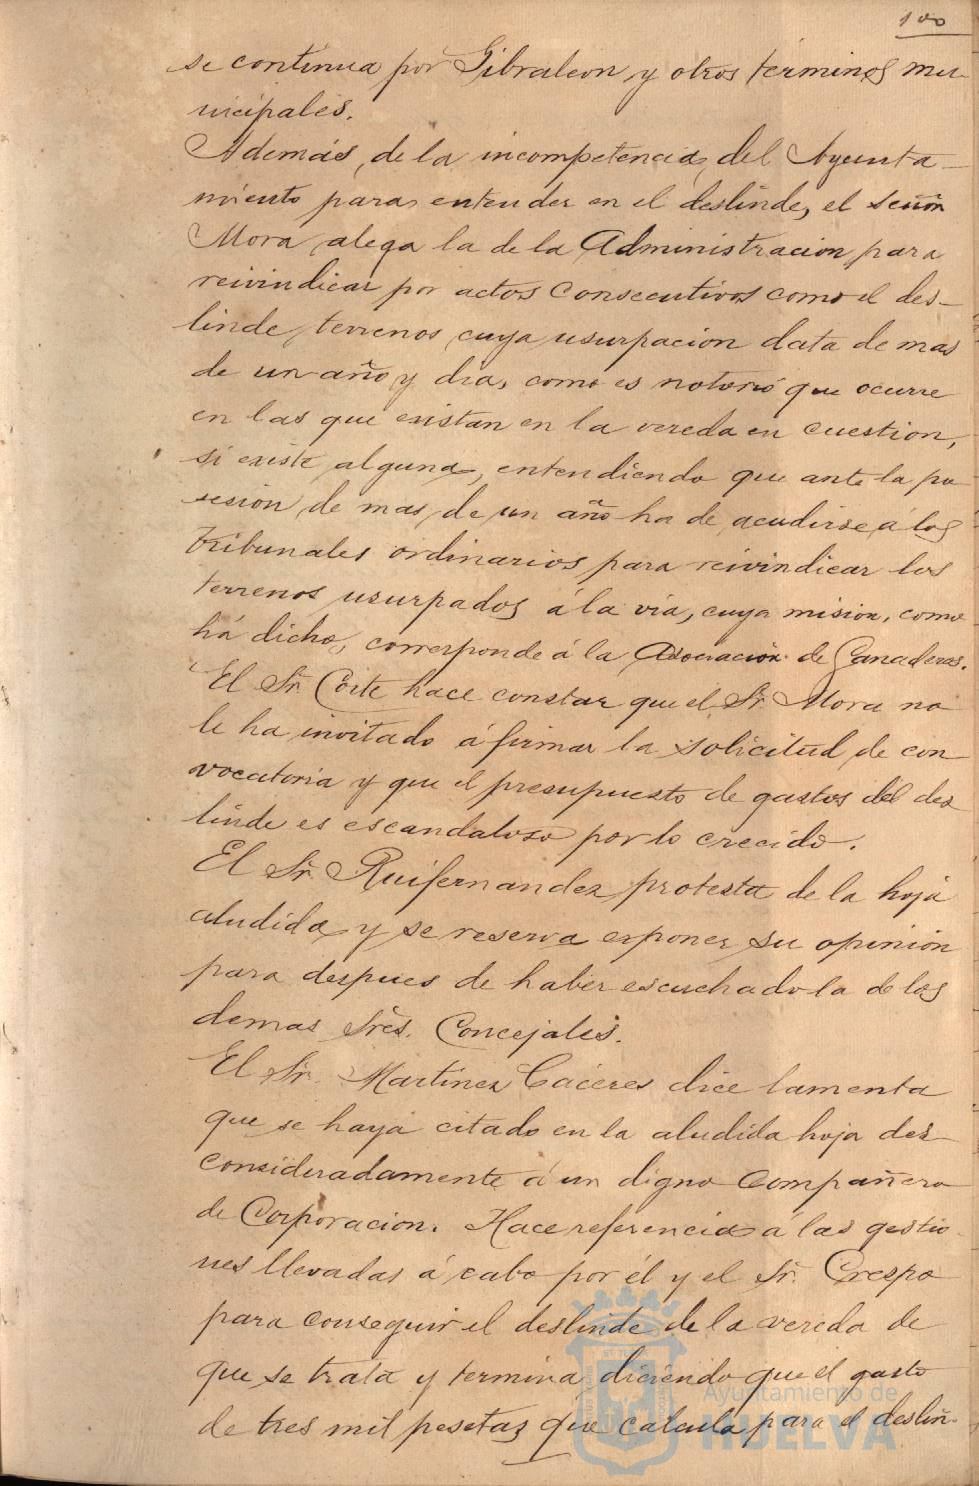 100
se continua por Gibraleon y otros términos mu-
nicipales.
Además de la incompetencia del Ayunta-
miento para entender en el deslinde, el señor
Mora alega la de la Administracion para
reivindicar por actos consecutivos como el des-
linde terrenos cuya usurpacion data de mas
de un año y dia, como es notorio que ocurre
en las que existan en la vereda en cuestion,
si existe alguna, entendiendo que ante la po
sesión de mas de un año ha de acudirse á los
tribunales ordinarios para reivindicar los
terrenos usurpados á la via, cuya mision, como
há dicho, corresponde á la Asociación de Ganaderos.
El Sr. Corte hace constar que el Sr. Mora no
le ha invitado á firmar la solicitud de con-
vocatoria y que el presupuesto de gastos del des
linde es escandaloso por lo crecido.
El Sr. Ruifernandez protesta de la hoja
aludida y se reserva exponer su opinión
para despues de haber escuchado la de los
demas Sres. Concejales.
El Sr. Martinez Caceres dice lamenta
que se haya citado en la aludida hoja des-
consideradamente á un digno compañero
de Corporacion. Hace referencia á las gestio-
nes llevadas á cabo por él y el Sr. Crespo
para conseguir el deslinde de la vereda de
que se trata y termina diciendo que el gasto
de tres mil pesetas que calcula para el deslin-
Ayuntamiento de
HUELVA